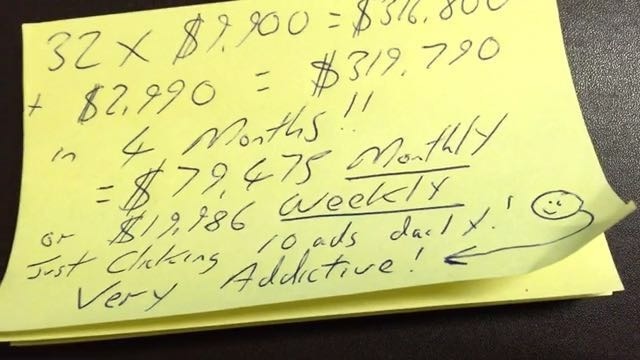 32 X $9,900 = $316,800
+ $2,990 = $319,790
in 4 Months!!
= $79,475 Monthly
or $19,986 Weekly
Just Clicking 10 ads daily!
Very Addictive!